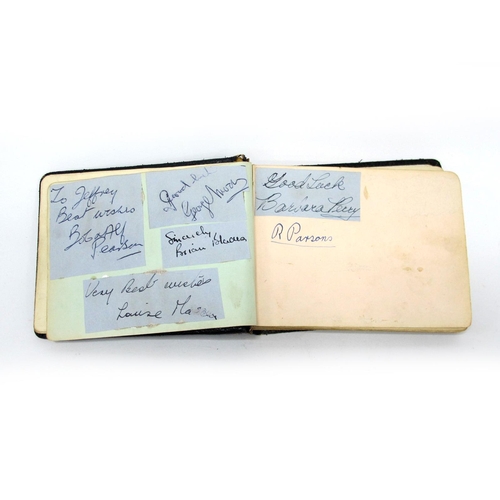 To Jeffrey
Best wishes
Bob & Alf
Pearson
Good Luck
George Moon
Sincerely
Brian
Very Best wishes
Louise
Good Luck
Barbara Perry
R Parsons